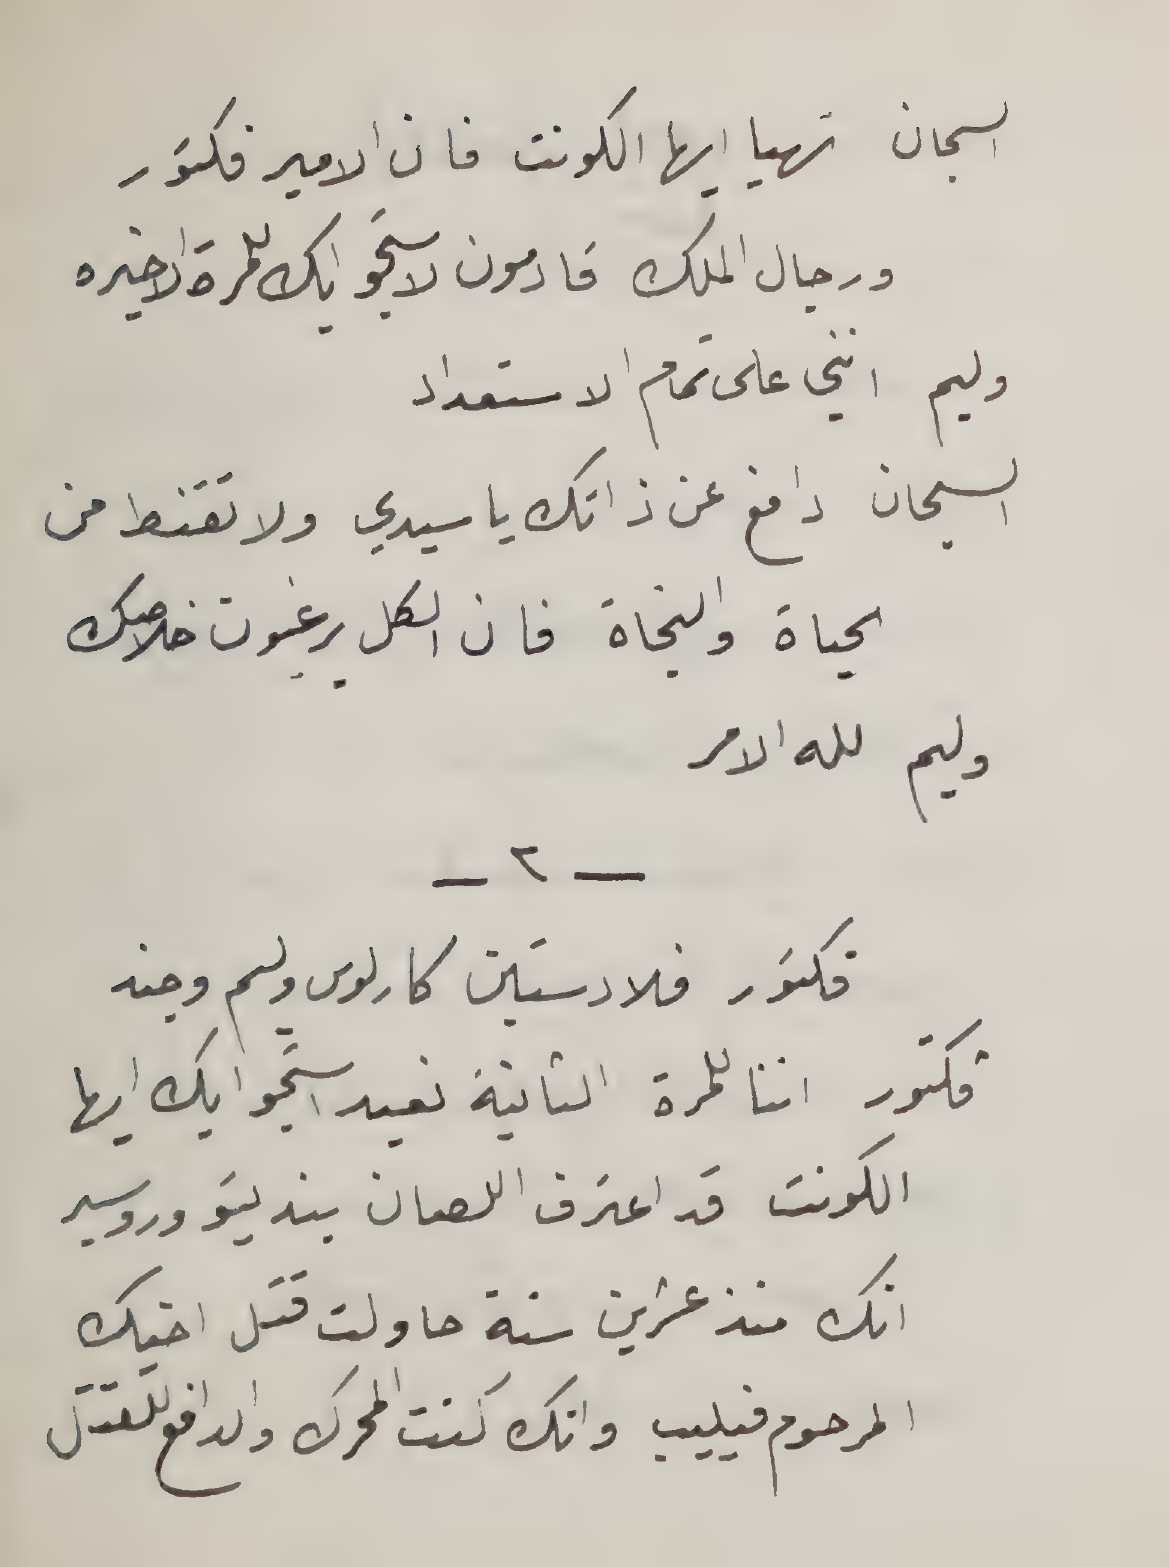 السجان تهيا ايها الكونت فان الامير فكتور
ورجال الملك قادمون لاستجوابك للمرة الاخيره
وليم انني على تمام الاستعداد
السجان دافع عن ذاتك يا سيدي ولا تقنط من
الحياة والنجاة فان الكل يرغبون خلاصك
وليم لله الامر
— ٢ —
فكتور فلادستين كارلوس وليم وجند
فكتور اننا للمرة الثانية نعيد استجوابك ايها
الكونت قد اعترف اللصان بندليتو وروسير
انك منذ عشرين سنة حاولت قتل اخيك
المرحوم فيليب وانك كنت المحرك والدافع للقتل